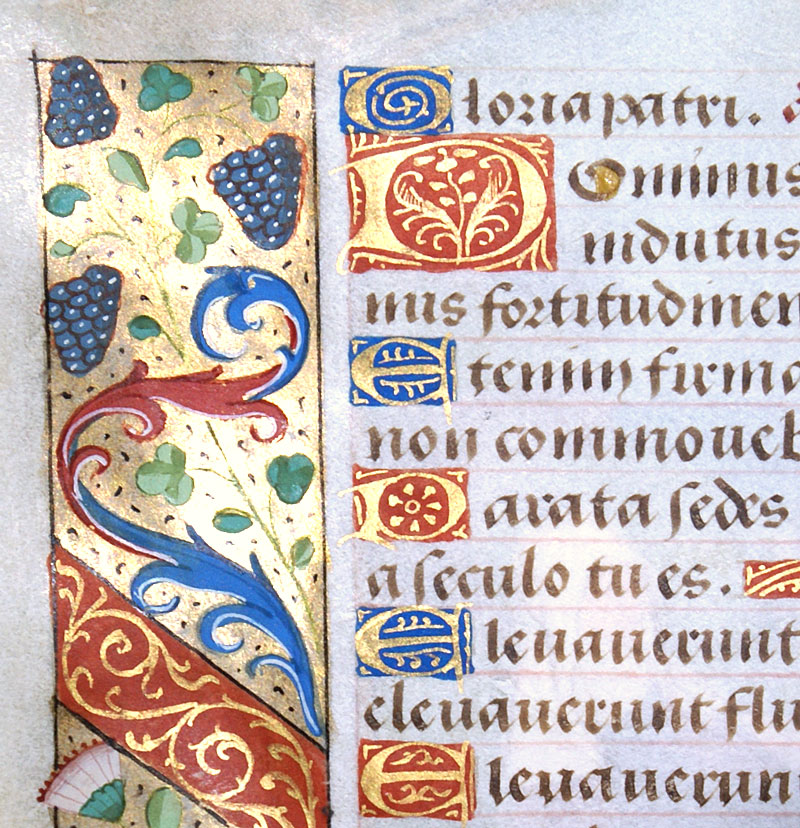 Gloria patri.
Dominus
indutus
nus fortitudinem
Etenim firma
non commoueb
Parata sedes
a seculo tu es.
Eleuauerunt
eleuauerunt flu
Eleuauerun